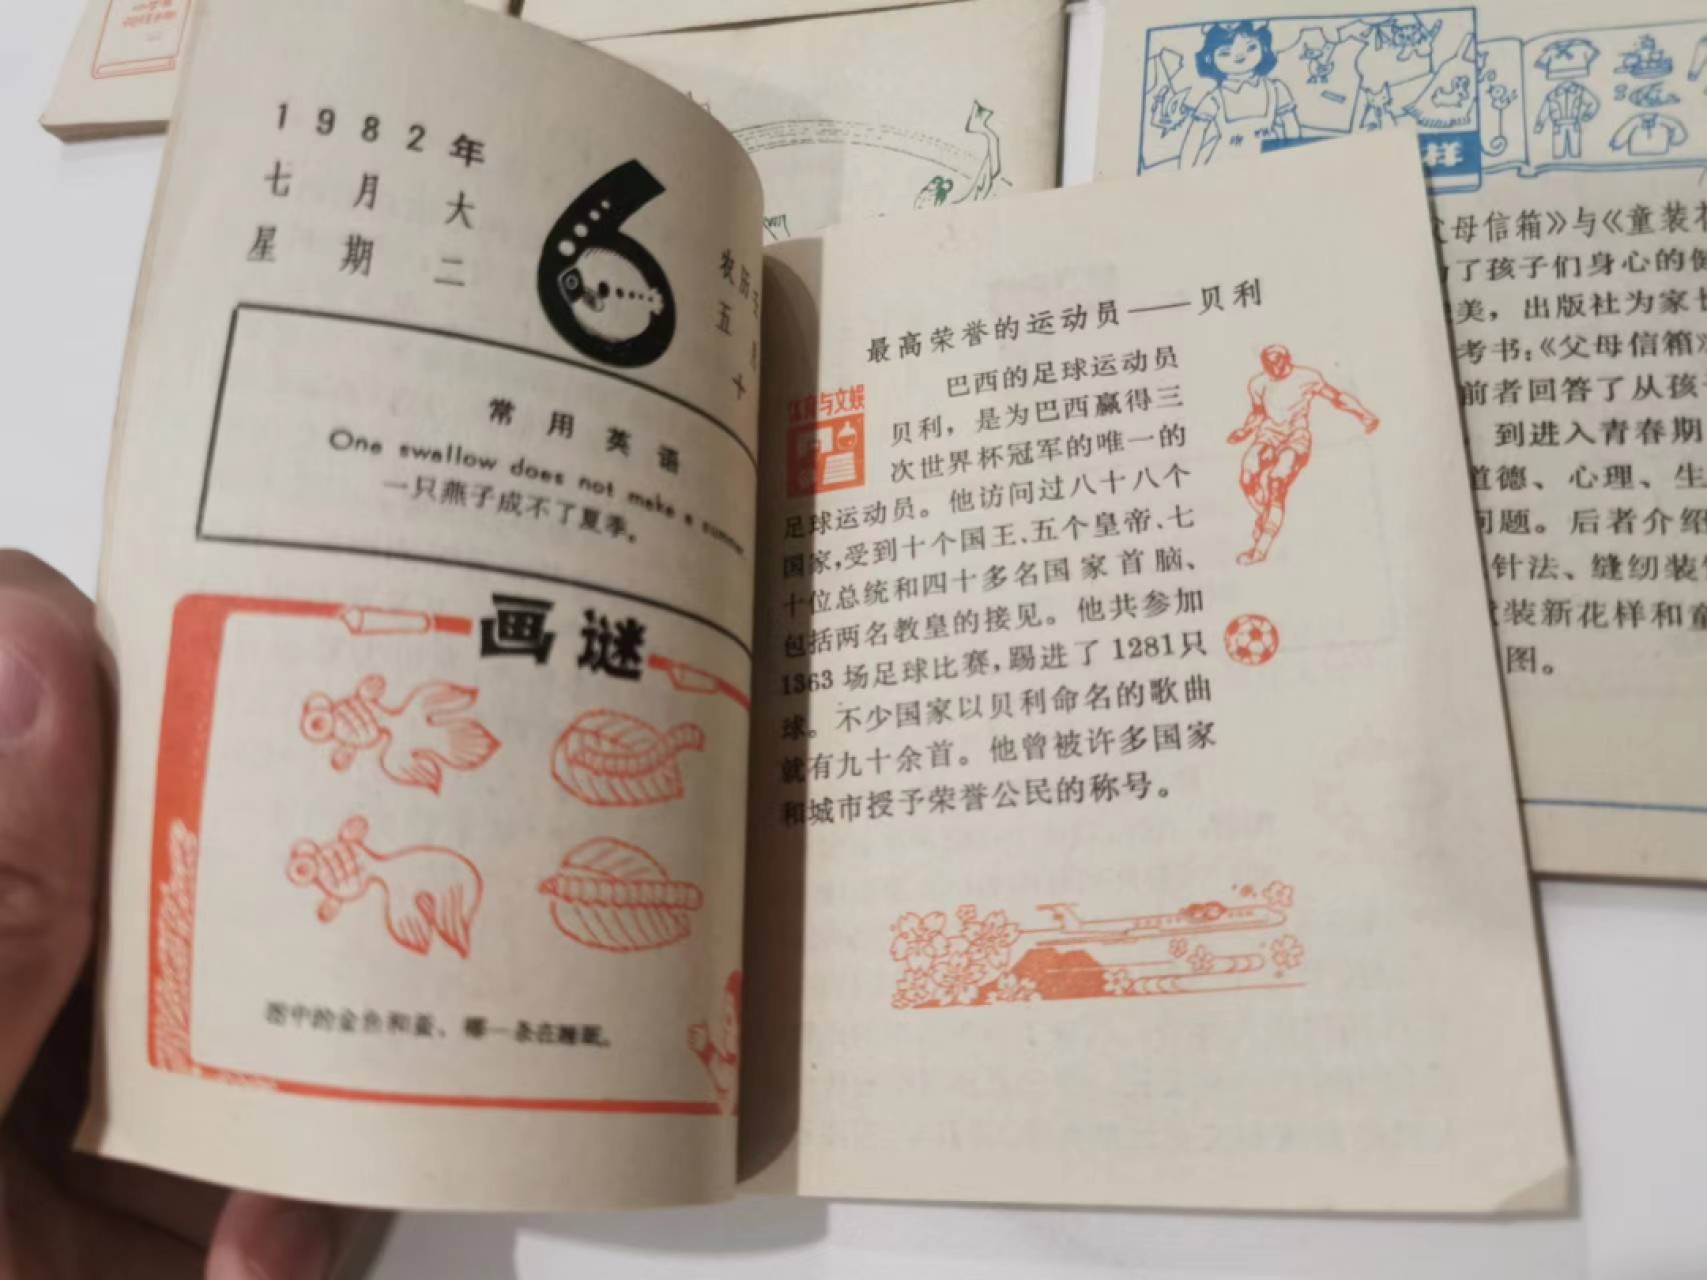 1982年
七月大
星期二
6
农历
五月
十
常用英语
One swallow does not make a summer
一只燕子成不了夏季。
画谜
图中的金鱼和蚕、哪一条在睡眠。
最高荣誉的运动员——贝利
体育与文娱
巴西的足球运动员
贝利，是为巴西赢得三
次世界杯冠军的唯一的
足球运动员。他访问过八十八个
国家,受到十个国王、五个皇帝、七
十位总统和四十多名国家首脑、
包括两名教皇的接见。他共参加
1363场足球比赛,踢进了1281只
球。不少国家以贝利命名的歌曲
就有九十余首。他曾被许多国家
和城市授予荣誉公民的称号。
样
父母信箱》与《童装
了孩子们身心的健
美，出版社为家长
考书:《父母信箱》
前者回答了从孩子
到进入青春期
道德、心理、生
问题。后者介绍
针法、缝纫装
装新花样和童
图。